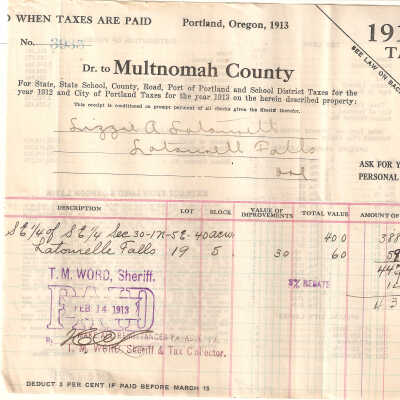 D WHEN TAXES ARE PAID
Portland, Oregon, 1913
191
TA
SEE LAW ON BACK
No. 3935
Dr. to Multnomah County
For State, State School, County, Road, Port of Portland and School District Taxes for the
year 1912 and City of Portland Taxes for the year 1913 on the herein described property:
This receipt is conditioned on prompt payment of all checks given the Sheriff therefor.
Lizzie A Latourell
Latourell Falls
Ore
ASK FOR Y
PERSONAL
DESCRIPTION LOT BLOCK VALUE OF IMPROVEMENTS TOTAL VALUE AMOUNT OF
SE 1/4 of SE 1/4 Sec 30-1N-5E-40 acres 400 388
Latourelle Falls 19 5 30 60
3% REBATE
T. M. WORD, Sheriff.
PAID
FEB 14 1913
T. M. WORD, Sheriff & Tax Collector.
DEDUCT 3 PER CENT IF PAID BEFORE MARCH 15